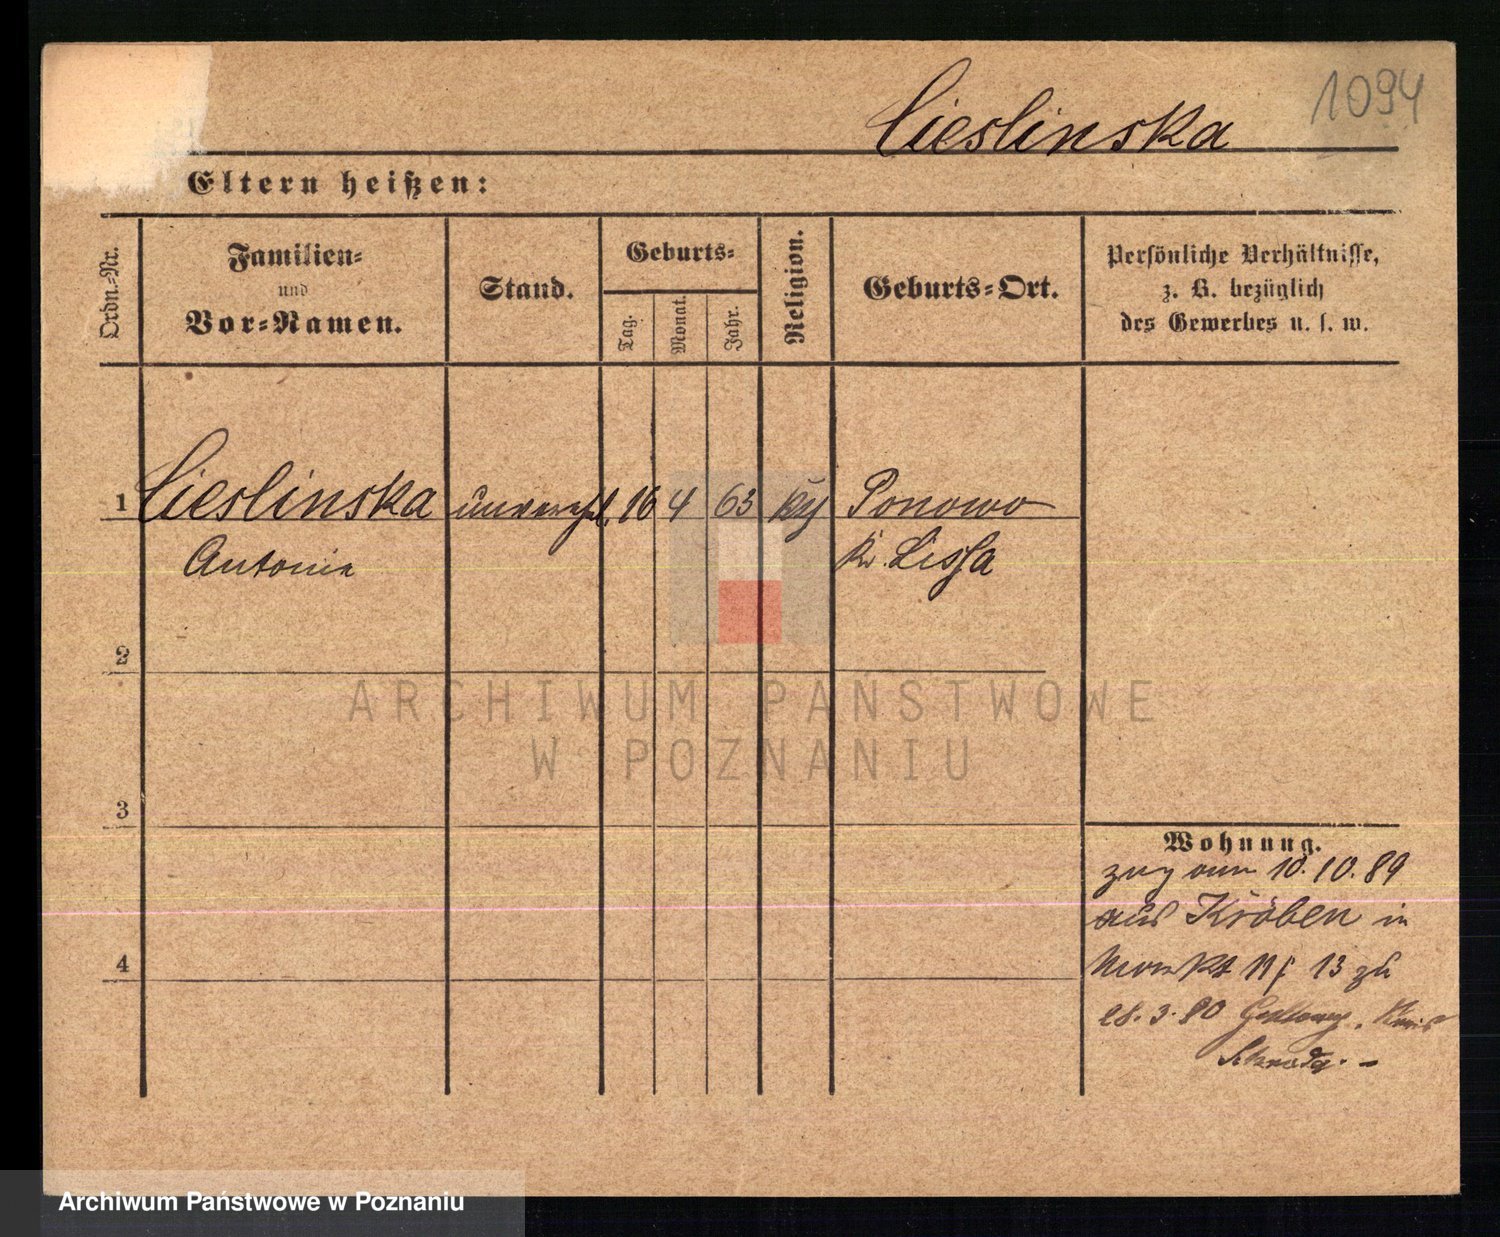 1094
Cieslinska
Eltern heißen:
Ordn.-Nr.
Familien-
und
Vor-Namen.
Stand.
Geburts-
Tag.
Monat.
Jahr.
Religion.
Geburts-Ort.
Persönliche Verhältnisse,
z. B. bezüglich
des Gewerbes u. s. w.
1 Cieslinska unverehl. 16 4 63 Ponowo
Antonie Kr. Lissa
2
3
4
Wohnung.
zug am 10.10.89
aus Kröben in
Markt 11/13 zu
28.3.90
Schroda. –
ARCHIWUM PAŃSTWOWE
W POZNANIU
Archiwum Państwowe w Poznaniu